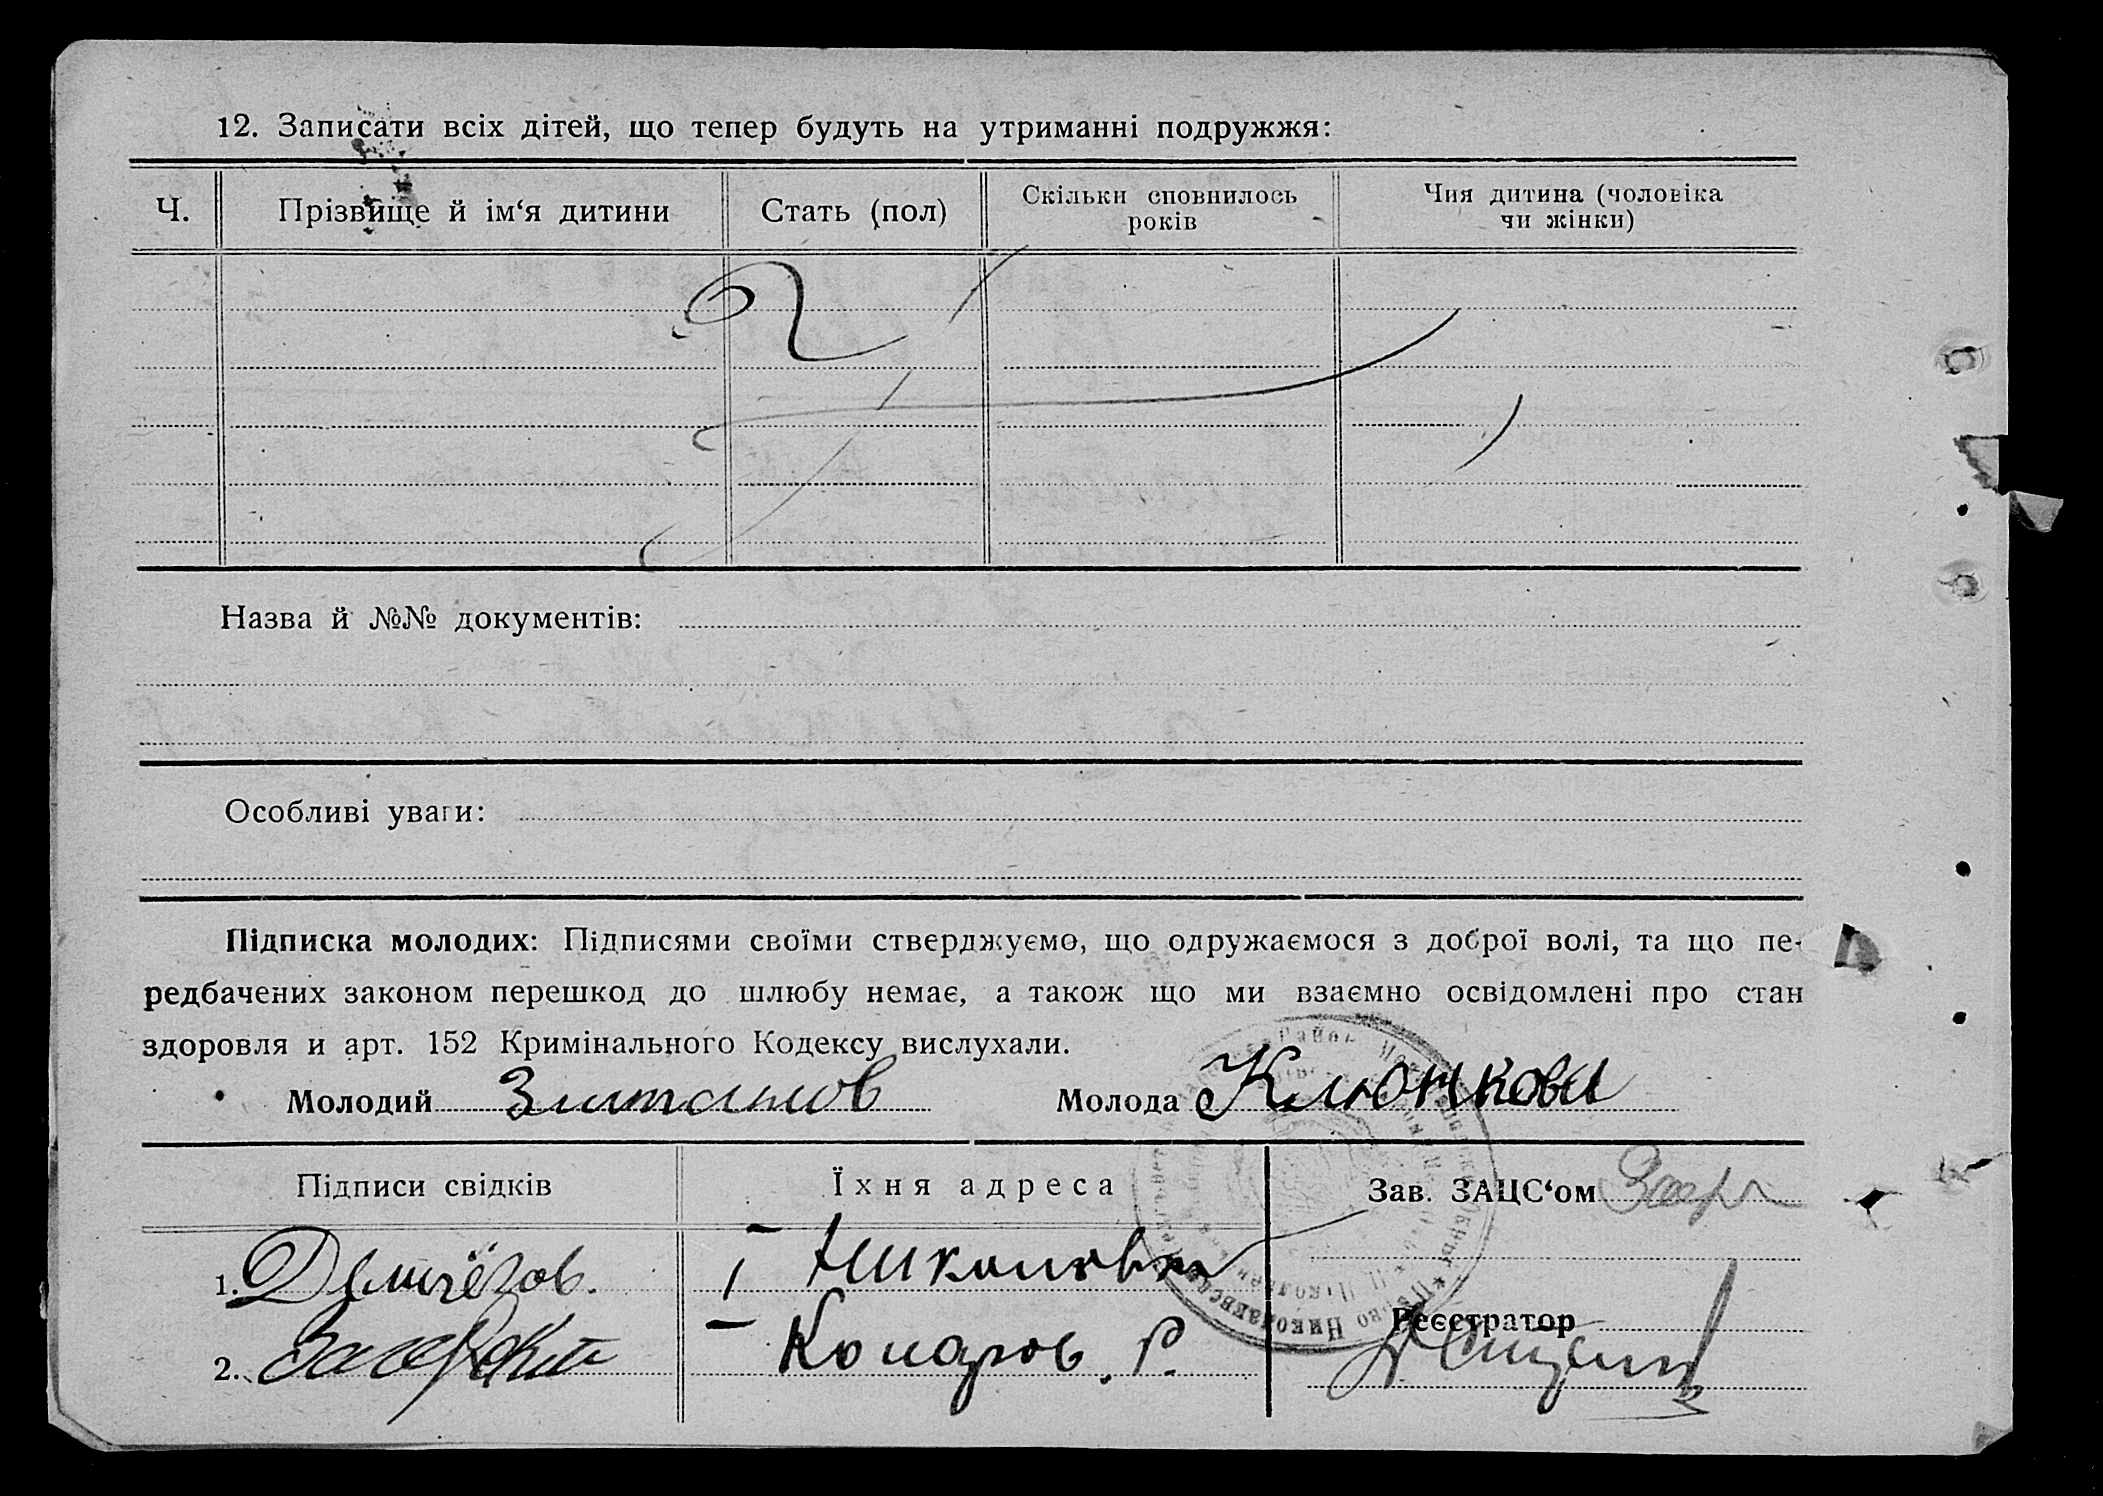 12. Записати всіх дітей, що тепер будуть на утриманні подружжя:
Ч. Прізвище й ім‘я дитини Стать (пол) Скільки сповнилось років Чия дитина (чоловіка чи жінки)
Назва й №№ документів:
Особливі уваги:
Підписка молодих: Підписями своїми стверджуємо, що одружаємося з доброї волі, та що пе-
редбачених законом перешкод до шлюбу немає, а також що ми взаємно освідомлені про стан
здоровля и арт. 152 Кримінального Кодексу вислухали.
Молодий Молода Клюкова
Підписи свідків Їхня адреса Зав. ЗАЦС‘ом
1.
Реєстратор
2. Комаров. Р.